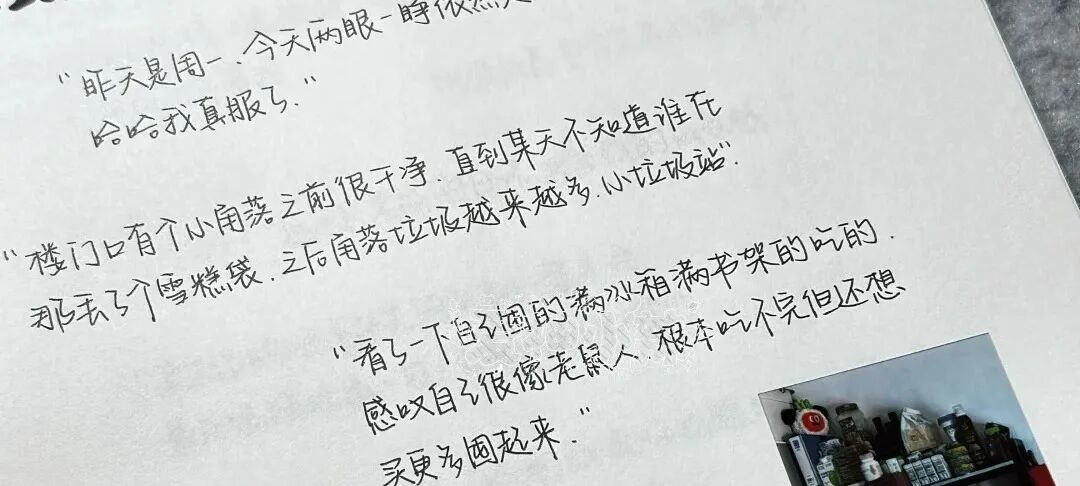 "昨天是周一、今天两眼一睁依然是
哈哈我真服了."
"楼门口有个小角落之前很干净.直到某天不知道谁在
那丢了个雪糕袋.之后角落垃圾越来越多.小垃圾站".
"看了一下自己囤的满冰箱满书架的吃的.
感叹自己很像老鼠人.根本吃不完但还想
买更多囤起来."